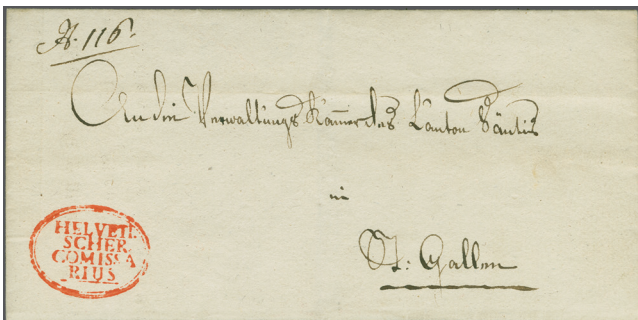 N. 116.
An die Verwaltungs Kam̄er des Canton Säntis
in
St: Gallen
HELVETI
SCHER
COMISSA
RIUS